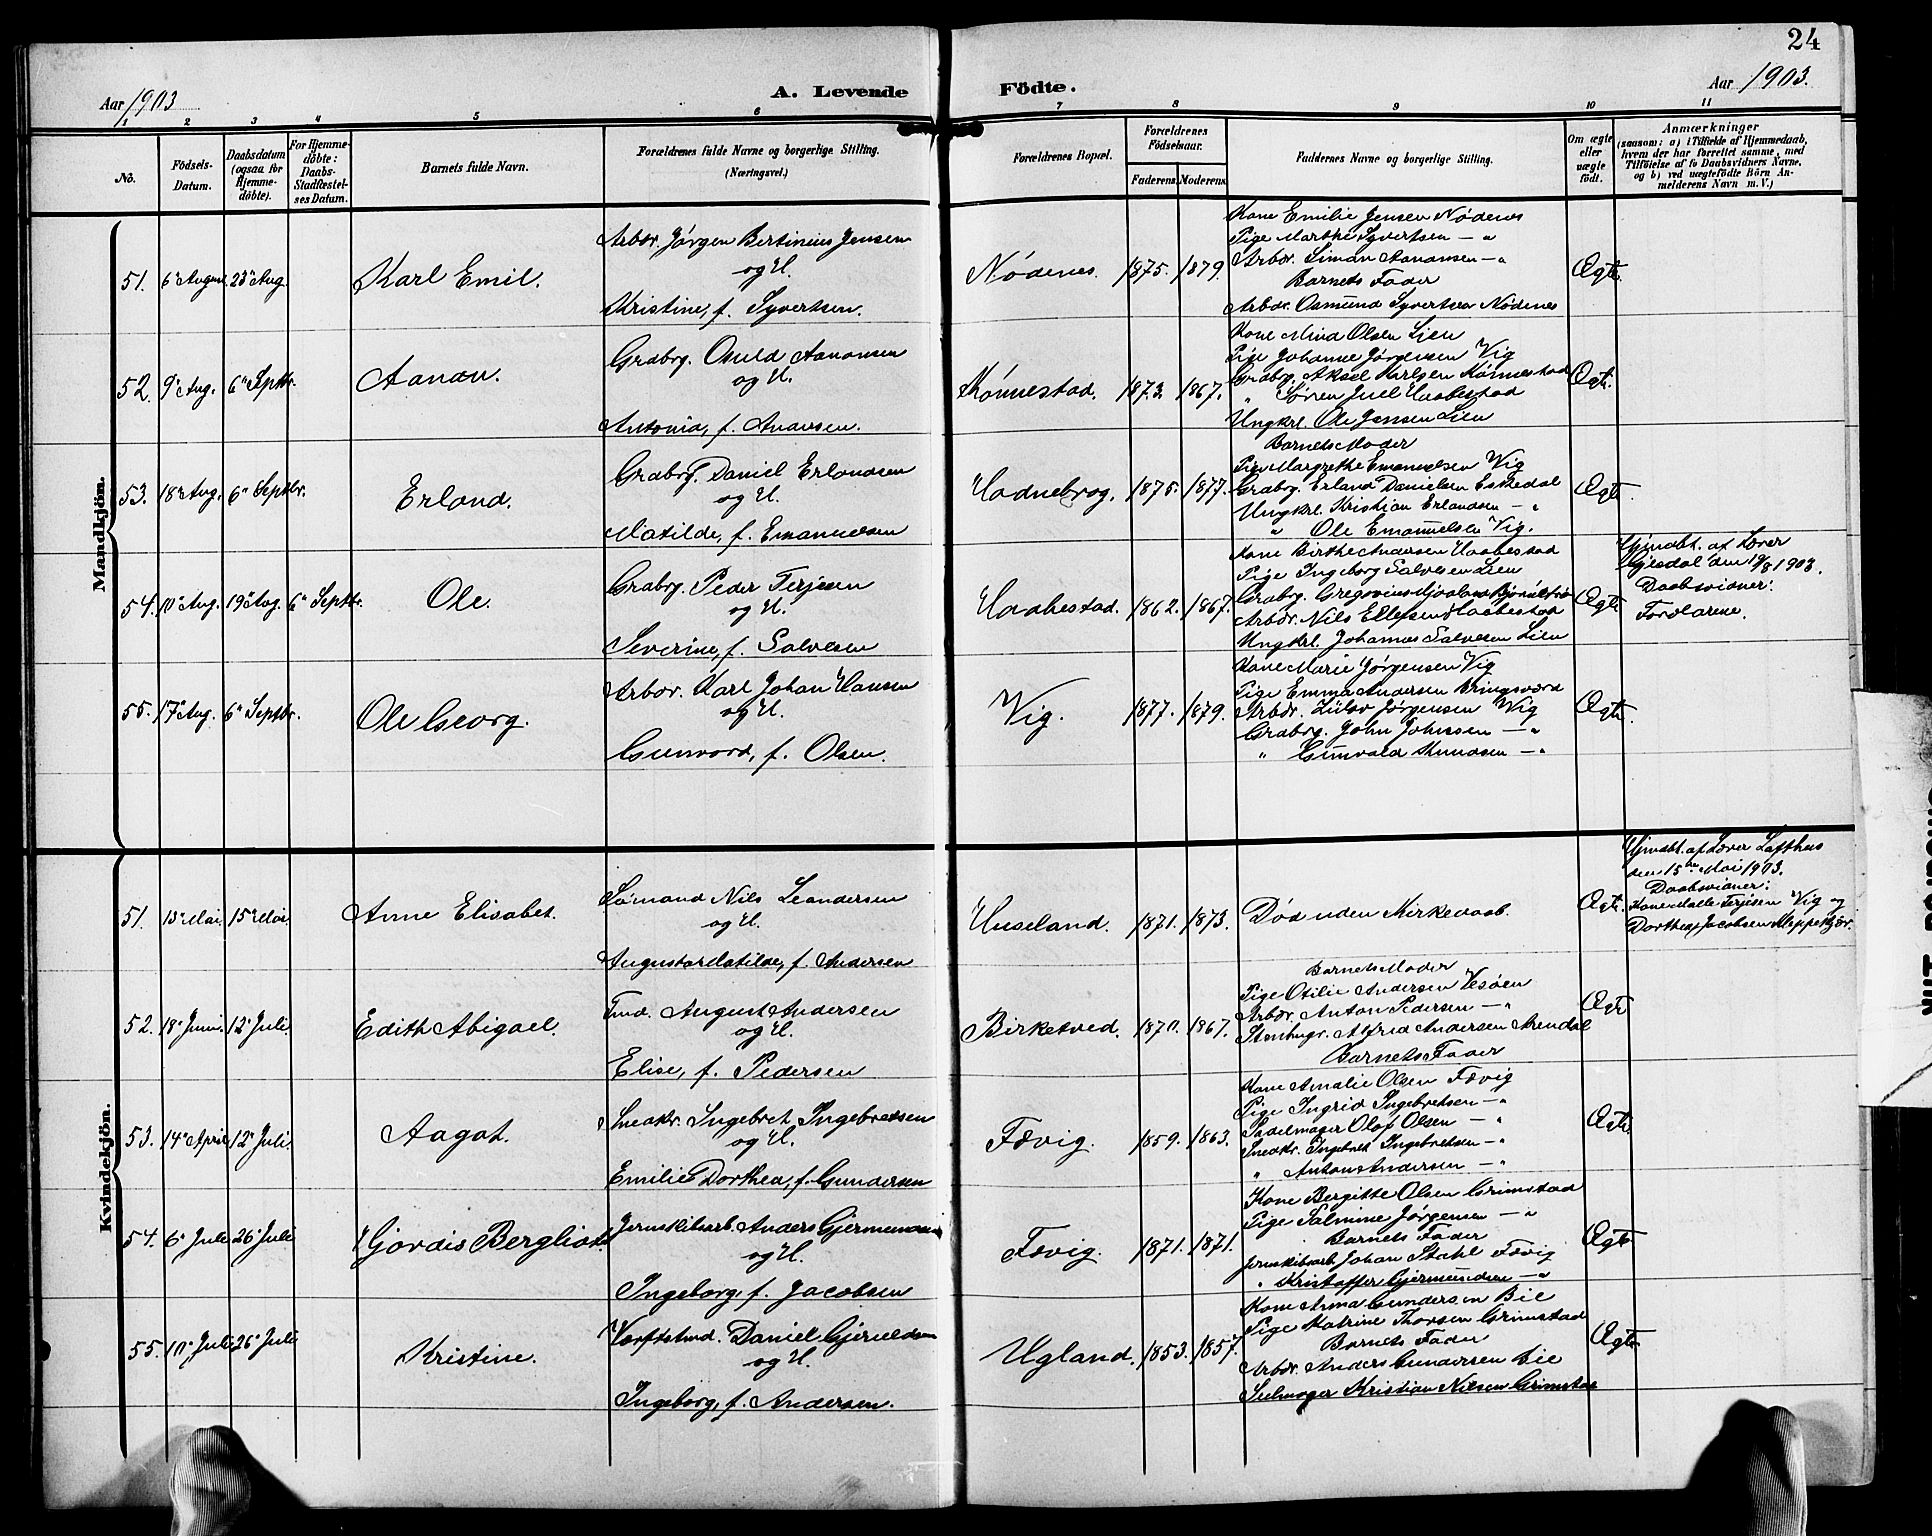 24
Aar 1903
A. Levende Födte.
Aar 1903.
1 2 3 4 5 6 7 8 9 10 11
No.
Födsels-Datum.
Daabsdatum (ogsaa for Hjemme-döbte).
For Hjemme-döbte: Daabs-Stadfæstel-ses Datum.
Barnets fulde Navn.
Forældrenes fulde Navne og borgerlige Stilling. (Næringsvei.)
Forældrenes Bopæl.
Forældrenes Födselsaar.
Faderens. Moderens.
Faddernes Navne og borgerlige Stilling.
Om ægte eller uægte födt.
Anmærkninger
(saasom: a) i Tilfælde af Hjemmedaab, hvem der har forrettet samme, med Tilföielse af to Daabsvidners Navne, og b) ved uægtefödte Börn An-melderens Navn m. V.)
Mandkjön.
51. 6te August 23de Aug. Karl Emil.
Arbdr. Jörgen Bertinius Jensen
og H.
Kristine, f. Syvertsen.
Nödenes. 1875. 1879.
Kone Emilie Jensen Nödenes
Pige Marthe Syvertsen — "
Arbdr. Simon Aanonsen — "
Barnets Fader
Arbdr. Osmund Syvertsen Nödenes
Ægte.
52. 9de Aug. 6te Septbr. Aanon.
Grdbrg. Osuld Aanonsen
og H.
Antonia, f. Andersen.
Könnestad. 1873. 1867.
Kone Mina Olsen Lien
Pige Johanne Jörgensen Vig
Grdbrg. Aksel Karlsen Könnestad
" Sören Juel Haabestad
Ungkrl. Ole Jensen Lien
Ægte.
53. 18de Aug. 6te Septbr. Erland.
Grdbrg. Daniel Erlandsen
og H.
Matilde, f. Emanuelsen
Hadnebrog. 1875. 1877.
Barnets Moder
Pige Margrethe Emanuelsen Vig
Grdbrg. Erland Danielsen Eskedal
Ungkrl. Kristian Erlandsen — "
" Ole Emanuelsen Vig.
Ægte.
54. 10de Aug. 19de Aug. 6te Septbr. Ole.
Grdbrg. Peder Terjesen
og H.
Severine, f. Salvesen
Haabestad. 1862. 1867.
Kone Birthe Andersen Haabestad
Pige Ingeborg Salvesen Lien
Grdbrg. Gregorius
Arbdr. Nils Ellefsen Haabestad
Ungkrl. Johannes Salvesen Lien
Ægte
Hjmdbt. af Lærer
Gjesdal den 19/8 1903.
Daabsvidner:
Forældrene.
55. 17de Aug. 6te Septbr. Ole Georg.
Arbdr. Karl Johan Hansen
og H.
Gunvord, f. Olsen.
Vig. 1877. 1879.
Kone Marie Jörgensen Vig
Pige Emma Andersen Kringsværd
Arbdr. Lulov Jörgensen Vig
Grdbrg. John Johnsen — "
" Gunvald Knudsen — "
Ægte.
Kvindekjön.
51. 13de Mai. 15de Mai. Anne Elisabet.
Sömand Nils Leandersen
og H.
Augusta Matilde, f. Andersen
Huseland. 1871. 1873.
Död uden Kirkedaab.
Ægte.
Hjmdbt. af Lærer Lofthus
den 15de Mai 1903.
Daabsvidner:
Kone Malle Terjesen Vig og
Dorthea Jacobsen Kleppekjær.
52. 18de Juni. 12te Juli. Edith Abigael.
Tmd. August Andersen
og H.
Elise, f. Pedersen
Birketved. 1870. 1867.
Barnets Moder
Pige Otilie Andersen Vesöen
Arbdr. Anton Pedersen — "
Stenhugr. Alfred Andersen Arendal
Barnets Fader
Ægte
53. 14de April 12te Juli. Aagot.
Snedkr. Ingebret Ingebretsen
og H.
Emilie Dorthea, f. Gundersen
Fævig. 1859. 1863.
Kone Amalie Olsen Fævig
Pige Ingrid Ingebretsen — "
Sadelmager Olaf Olsen — "
Snedkr. Ingebret Ingebretsen — "
" Anton Andersen — "
Ægte.
54. 6te Juli 26de Juli Hjördis Bergliot.
Jernskibsarb. Anders Gjermundsen
og H.
Ingeborg, f. Jacobsen
Fævig. 1871. 1871.
Kone Bergitte Olsen Grimstad
Pige Salmine Jörgensen — "
Barnets Fader
Jernskibsarb. Johan Stahl Fævig
" Kristoffer Gjermundsen — "
Ægte
55. 10de Juli 26de Juli Kristine.
Værftstmd. Daniel Gjeruldsen
og H.
Ingeborg, f. Andersen.
Ugland. 1853. 1857.
Kone Anna Gundersen Bie
Pige Katrine Thorsen Grimstad
Barnets Fader
Arbdr. Anders Gundersen Bie
Seilmager Kristian Nilsen Grimstad
Ægte